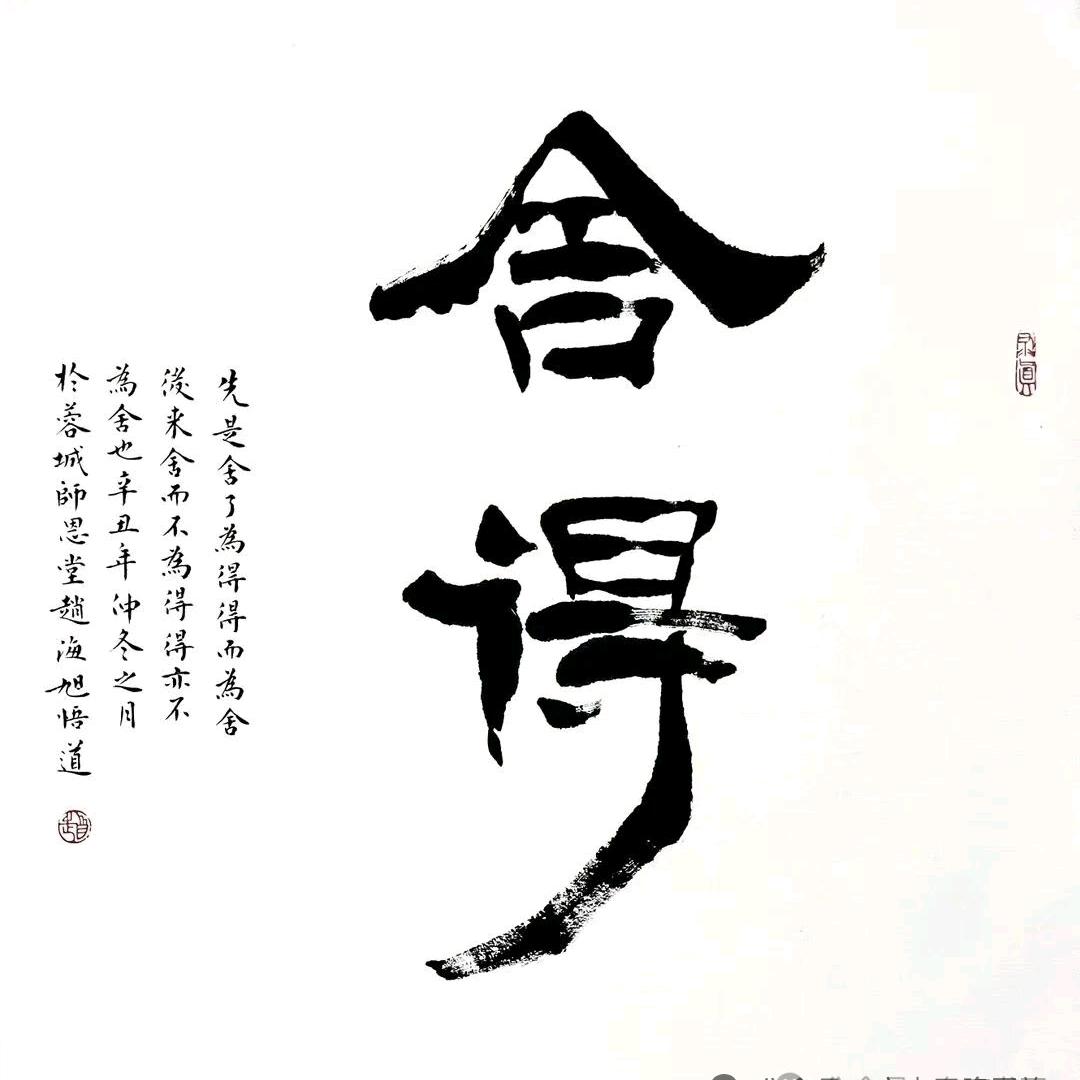 舍
得
先是舍了為得得而為舍
後来舍而不為得得亦不
為舍也辛丑年仲冬之月
於蓉城師恩堂趙海旭悟道